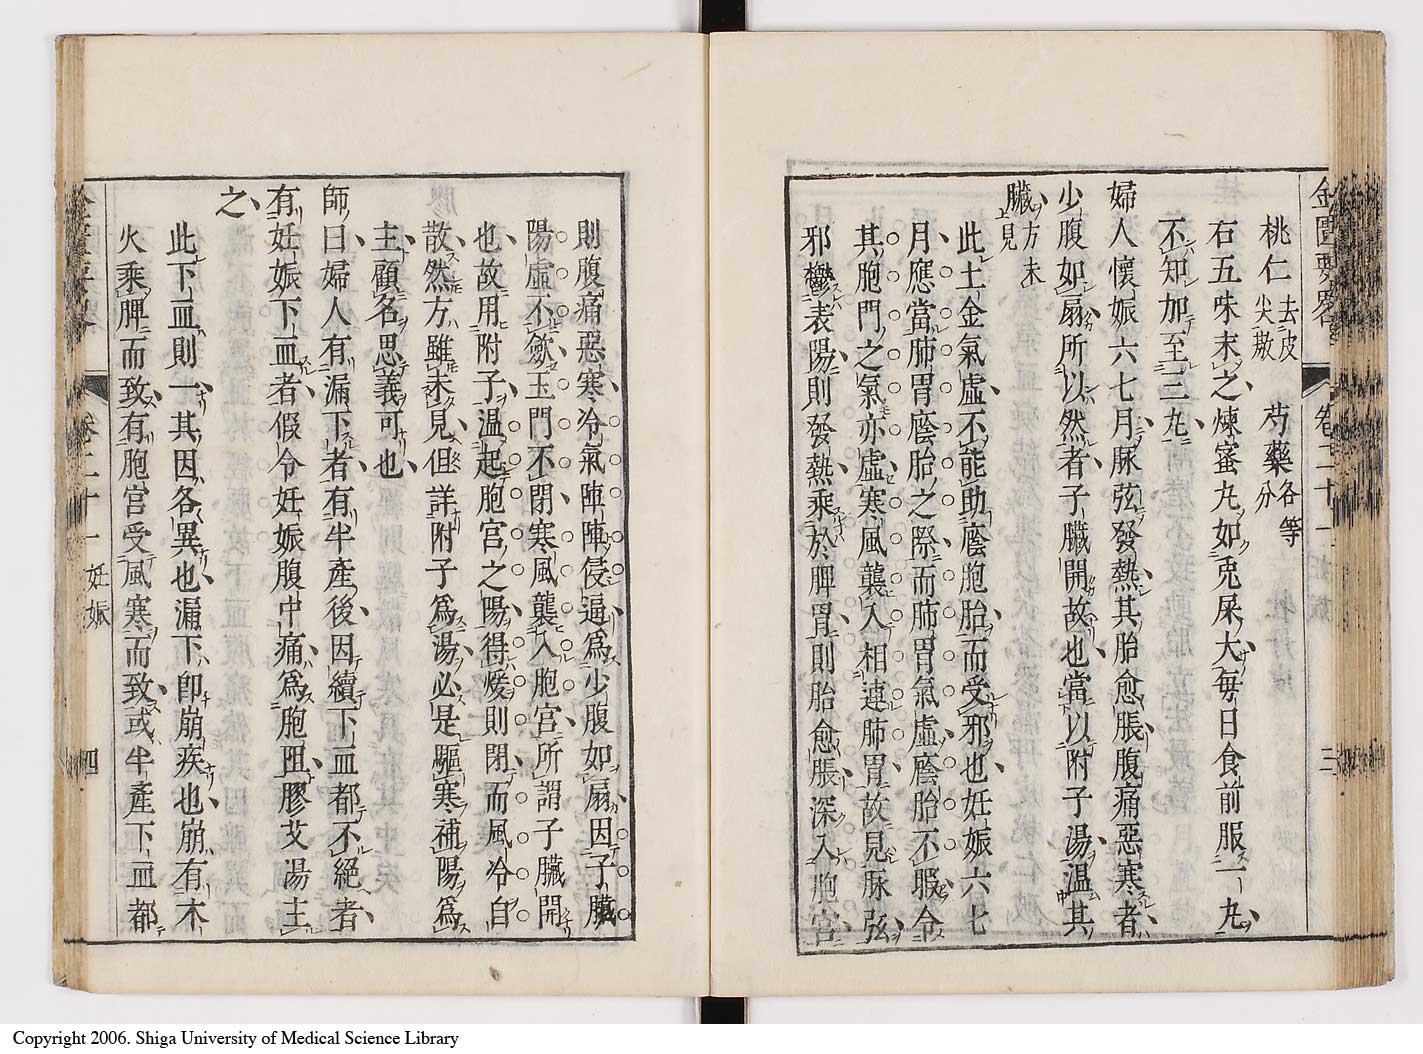 金匱要略 卷二十一 妊娠 三
桃仁 去皮尖熬 芍藥 各等分
右五味末之煉蜜丸如兎屎大每日食前服一丸
不知加至三丸
婦人懷娠六七月脉弦發熱其胎愈脹腹痛惡寒者
少腹如扇所以然者子臟開故也當以附子湯溫其
臟 方未見
此土金氣虛不能助蔭胞胎而受邪也妊娠六七
月應當肺胃蔭胎之際而肺胃氣虛蔭胎不暇令
其胞門之氣亦虛寒風襲入相連肺胃故見脉弦
邪鬱表陽則發熱乘於脾胃則胎愈脹深入胞宮
則腹痛惡寒冷氣陣陣侵逼爲少腹如扇因子臟
陽虛不斂玉門不閉寒風襲入胞宮所謂子臟開
也故用附子溫起胞宮之陽得煖則閉而風冷自
散然方雖未見但詳附子爲湯必是驅寒補陽爲
主顧名思義可也
師曰婦人有漏下者有半產後因續下血都不絕者
有妊娠下血者假令妊娠腹中痛爲胞阻膠艾湯主
之
此下血則一其因各異也漏下卽崩疾也崩有木
火乘脾而致有胞宮受風寒而致或半產下血都
卷二十一 妊娠 四
Copyright 2006. Shiga University of Medical Science Library